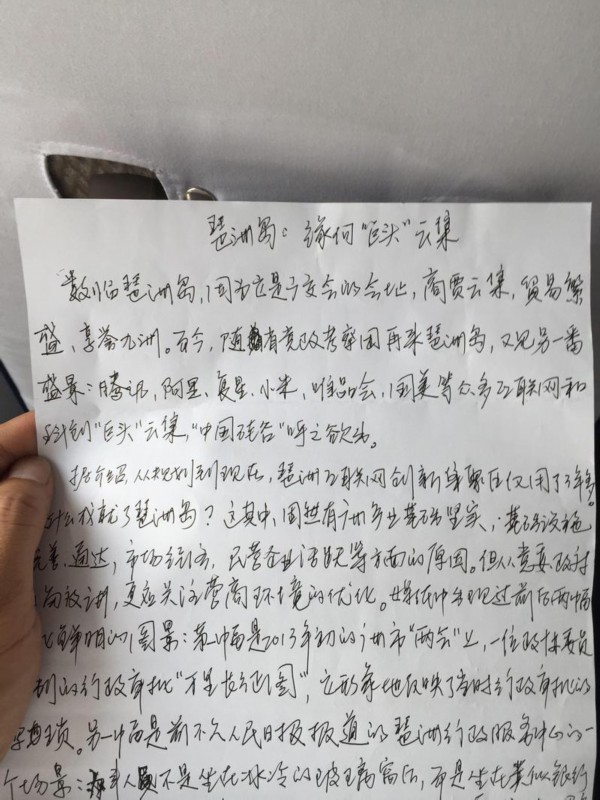 琶洲岛：缘何“巨头”云集
数临琶洲岛，因为它是广交会的会址，商贾云集，贸易繁
盛，享誉九洲。而今，随有党政考察团再来琶洲岛，又见另一番
盛景：腾讯，阿里，复星，小米，唯品会，国美等众多互联网和
科创“巨头”云集，“中国硅谷”呼之欲出。
据介绍，从规划到现在，琶洲互联网创新集聚区仅用了3年多。
什么成就了琶洲岛？这其中，固然有广州产业基础坚实，基础设施
完善、通达，市场经济，民营企业活跃等方面的原因。但从党委政府
方面而讲，更应关注营商环境的优化。媒体中出现过前后两幅
鲜明的图景：第一幅是2013年初的广州市“两会”上，一位政协委员
制的行政审批“万里长征图”，立形象地反映了当时行政审批的
琐。另一幅是前不久人民日报报道的琶洲行政服务中心的一
个场景：办事人员不是坐在冰冷的玻璃窗后，而是坐在类似银行